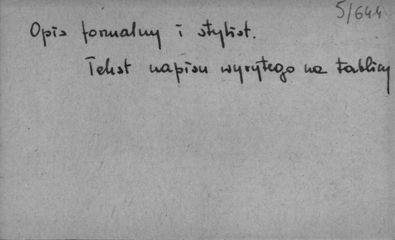 5/644
Opis formalny i stylist.
Tekst napisu wyrytego na tablicy